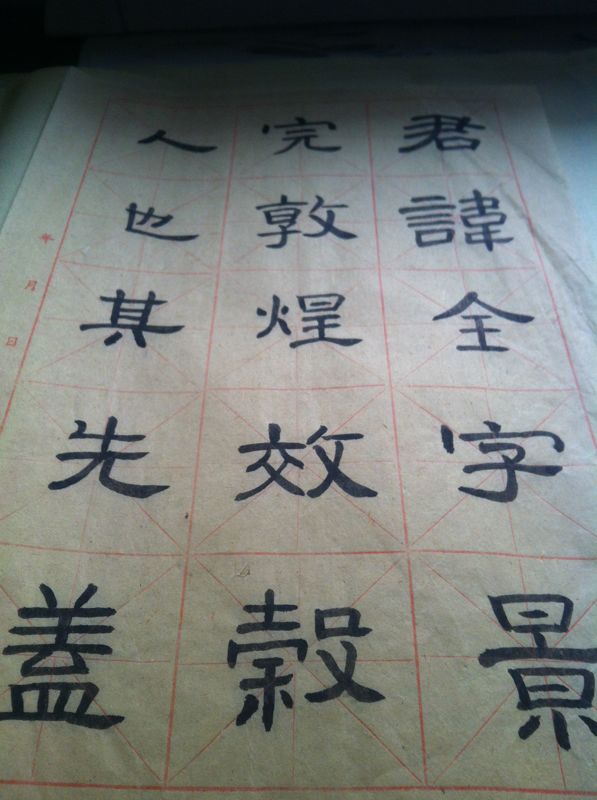 君諱全字景
完敦煌效穀
人也其先蓋
年月日